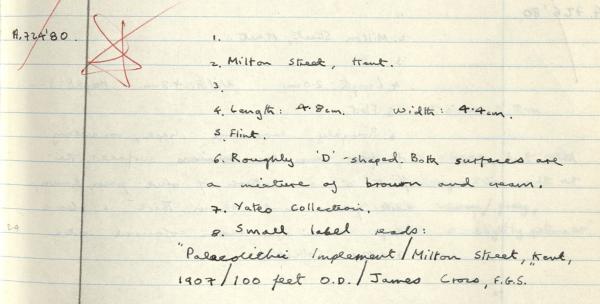 A.724'80.
1.
2. Milton Street, Kent.
3.
4. Length: 4.8cm. Width: 4.4cm.
5. Flint.
6. Roughly 'D'-shaped. Both surfaces are
a mixture of brown and cream.
7. Yates Collection.
8. Small label reads:
"Palaeolithic Implement/Milton Street, Kent,
1907/100 feet O.D./James Cross, F.G.S."